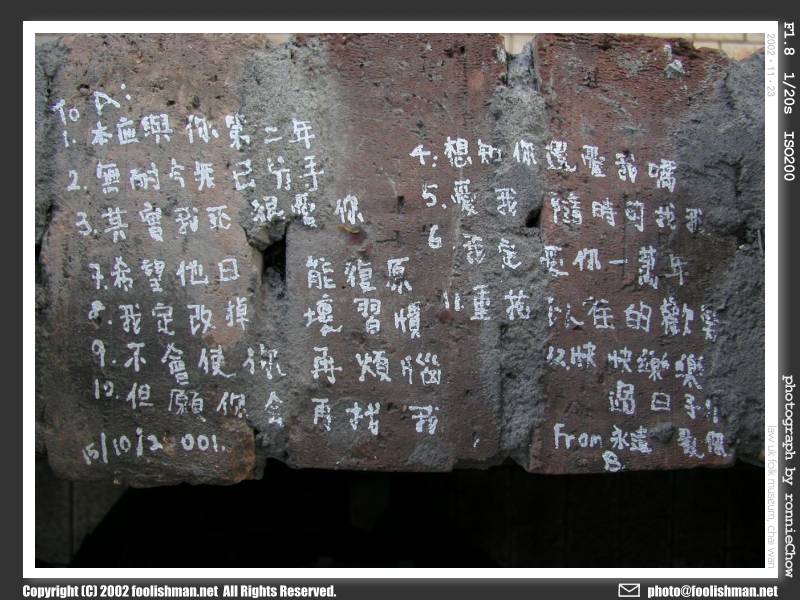 To A:
1. 本應與你第二年
2. 無耐今天已分手
3. 其實我死很愛你
4. 想知你還愛我嗎
5. 愛我隨時可找我
6 我定愛你一萬年
7. 希望他日能復原
8. 我定改掉壞習慣
9. 不會使你再煩腦
10. 但願你會再找我
11. 重拾以往的歡
12. 快快樂樂過日子!!
From 永遠愛你
B.
15/10/2001.
2002 - 11 - 23
law uk folk museum, chai wan
F1.8 1/20s ISO200
photograph by ronnieChow
Copyright (C) 2002 foolishman.net All Rights Reserved.
photo@foolishman.net